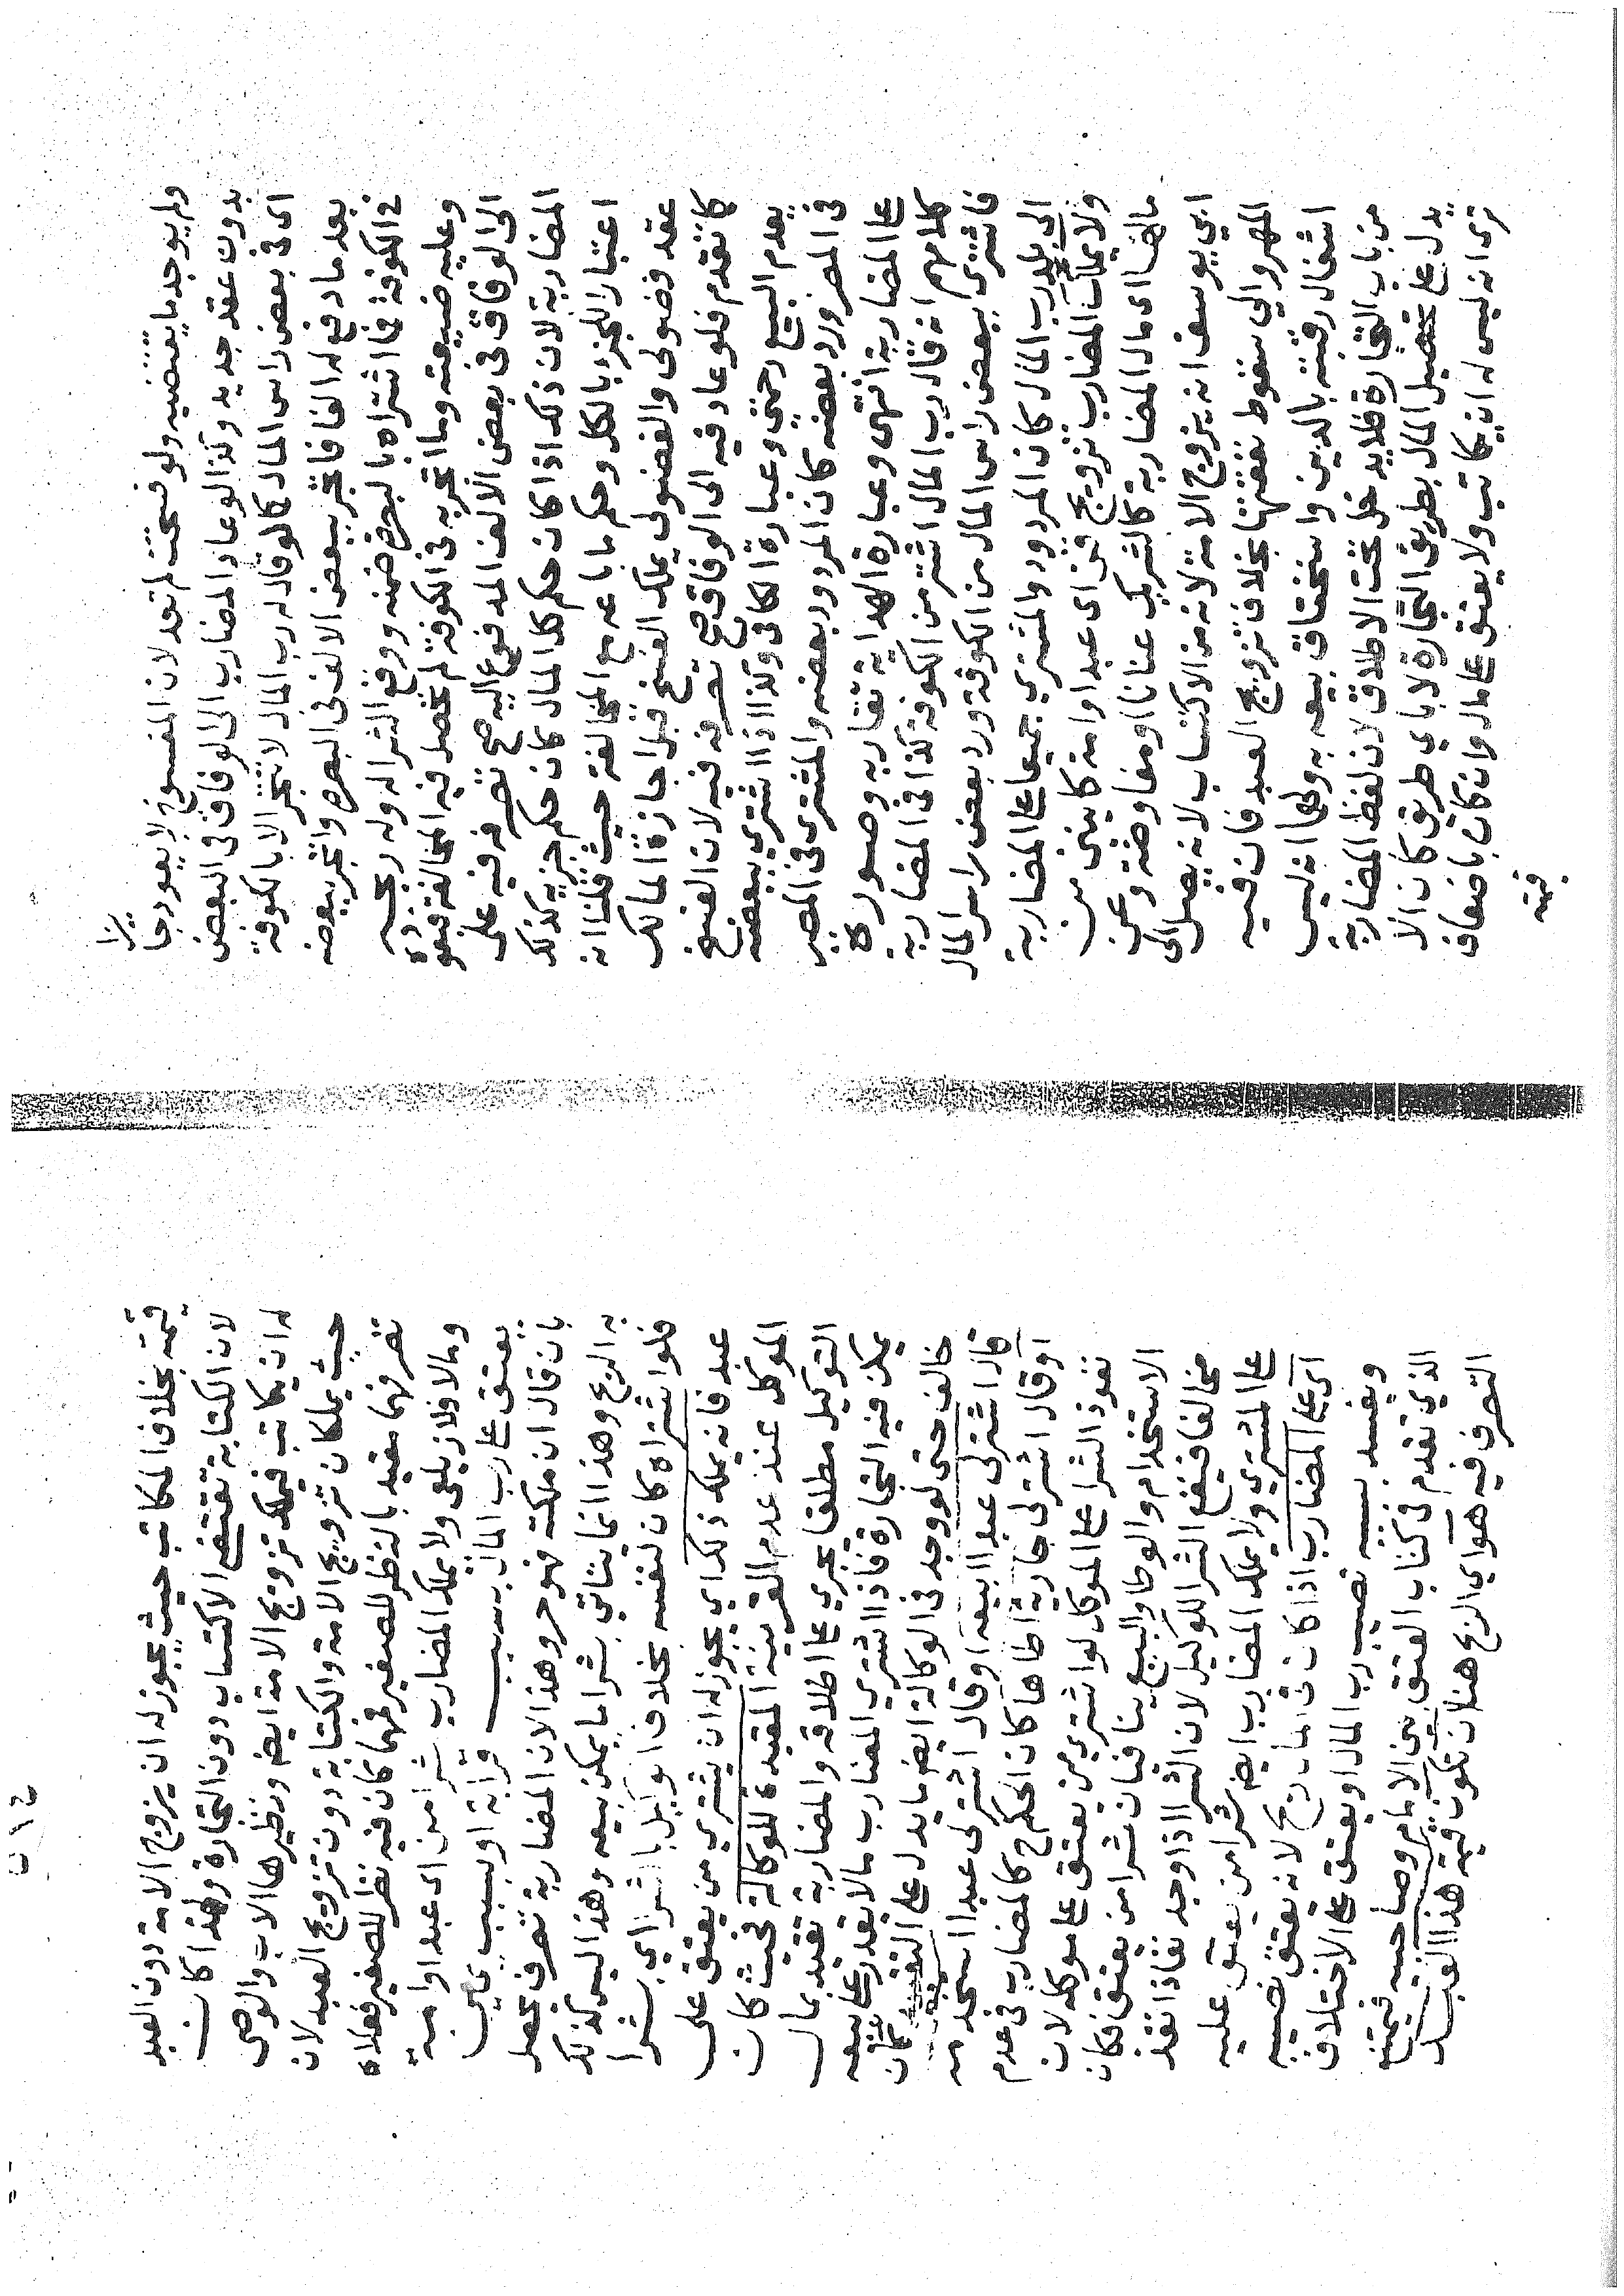 ولم يوجد ما يقتضيه ولو فسخت لم تعد لان المفسوخ لا يعود جا يزا
بدون عقد جديد وكذا لو عاد المضارب الى الوفاق فى البعض
اى فى بعض راس المال كما لو قال له رب المال لا تتجر الا بالكوفة
بعد ما دفع له الفا فاتجر ببعض الالف فى البصره واتجر ببعضه
فى الكوفة فما اشتراه بالبصره ضمنه ووقع الشرا له وله ربحه
وعليه ضيعته وما اتجر به فى الكوفة لم تحصل فيه المخالفة فبعوده
الى الوفاق فى بعض الالف المدفوع اليه صح تصرفه فيه على
المضاربة لان ذلك اذا كان حكم كل المال كان حكم جزيه كذلك
اعتبارا للجزء بالكل وحكم ما باعه مع المخالفة حيث قلنا انه
عقد فضولى والفضولى يملك الفسخ قبل اجازة المالك
كما تقدم فلو عاد فيه الى الوفاق صح تصرفه فيه لان الفسخ
بعدم البيع رحمتى وعبارة الكافى وكذا اذا اشترى ببعضه
فى المصر ورد بعضه كان المردود بعضه والمشترى فى المصر
على المضاربة انتهى وعبارة الهداية تقاربه وصورة
كلامهم انه قال رب المال اشتر من الكوفة كذا فى المضاربة
فاشترى ببعض راس المال من الكوفة ورد بعض راس المال
الى رب المال كان المردود والمشترى جميعا على المضاربة
ولا يملك المضارب تزويج قن اى عبد او امة كاينين من
مالها اى مال المضاربة كالشريك عنانا او مفاوضة وعن
ابي يوسف انه يزوج الامة لانه من الاكتساب لانه يصل الى
المهر والى سقوط نفقتها بخلاف تزويج العبد فان فيه
اشغال رقبته بالدين واستحقاق بيعه به ولهما انه ليس
من باب التجارة فلا يدخل تحت الاطلاق لان لفظ المضاربة
يدل على تحصيل المال بطريق التجارة لا باي طريق كان الا
ترى انه ليس له ان يكاتب ولا يعتق على مال وان كان باضعاف
قيمته
قيمته بخلاف المكاتب حيث يجوز له ان يزوج الامة دون العبد
لان الكتابة تقتضى الاكتساب دون التجارة ولهذا كان
له ان يكاتب فيملك تزويج الامة ايضا ونظيرها الاب والوصى
حيث يملكان تزويج الامة والكتابة دون تزويج العبد لان
تصرفهما مقيد بالنظر للصغير فمهما كان فيه نظر للصغير فعلاه
وما لا فلا زيلعى ولا يملك المضارب شرا من اى عبد او امة
يعتق على رب المال بسبب قرابة او بسبب يمين
بان قال ان ملكته فهو حر وهذا لان المضاربة تصرف يحصل
به الربح وهذا انما يتاتى بشرا ما يمكن بيعه وهذا ليس كذلك
فلو اشتراه كان لنفسه بخلاف الوكيل بالشرا اي بشرا
عبد فانه يملك ذلك اي يجوز له ان يشتري من يعتق على
الموكل عند عدم القرينة المقيدة للوكالة فحيث كان
التوكيل مطلقا يجري على اطلاقه والمضاربة تقيد بمال
يمكن فيه التجارة فاذا اشترى المضارب ما لا يقدر على بيعه
خالف حتى لو وجد فى الوكالة ايضا ما يدل على التقييد كان
قال اشترلى عبدا ابيعه او قال اشترلى عبدا استخدمه
او قال اشترلى جارية اطاها كان الحكم ح كالمضارب فى عدم
نفوذ الشرا على الموكل لو اشترى من يعتق على موكله لان
الاستخدام والوطا والبيع ينافيان شرا من يعتق فكان
مخالفا فيقع الشرا للوكيل لان الشرا اذا وجد نفاذا نفذ
على المشتري ولا يملك المضارب ايضا شرا من يعتق عليه
اى على المضارب اذا كان فى المال ربح لانه يعتق نصيبه
ويفسد بسببه نصيب رب المال او يعتق على الاختلاف
الذي تقدم فى كتاب العتق بين الامام وصاحبيه فيمتنع
التصرف فيه هو اي الربح هنا ان تكون قيمة هذا العبد